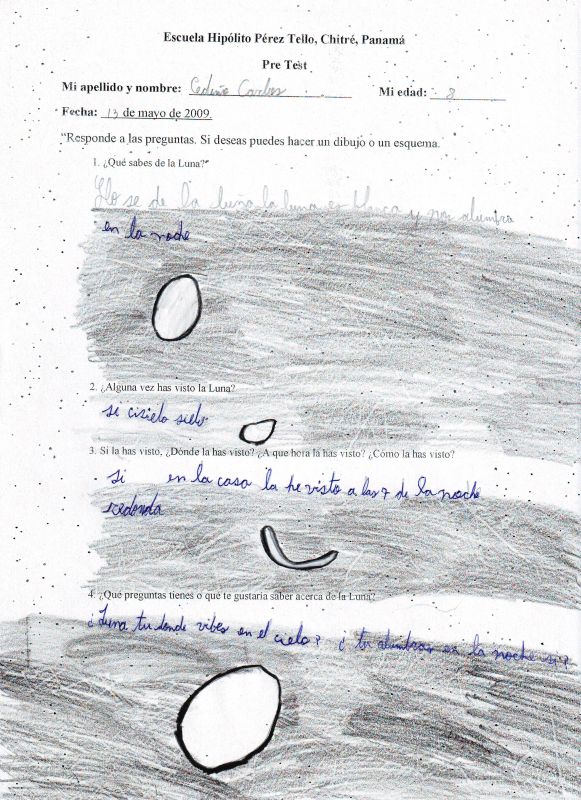 Escuela Hipólito Pérez Tello, Chitré, Panamá
Pre Test
Mi apellido y nombre: Cedeño Carlos Mi edad: 8
Fecha: 13 de mayo de 2009
"Responde a las preguntas. Si deseas puedes hacer un dibujo o un esquema.
1. ¿Qué sabes de la Luna?"
Yo se de la luna la luna es blanca y nos alumbra
en la noche
2. ¿Alguna vez has visto la Luna?
si
3. Si la has visto, ¿Dónde la has visto? ¿A que hora la has visto? ¿Cómo la has visto?
si en la casa la he visto a las 7 de la noche
redonda
4. ¿Qué preguntas tienes o que te gustaría saber acerca de la Luna?
¿Luna tu donde vibes en el cielo? ¿tu alumbras en la noche si?